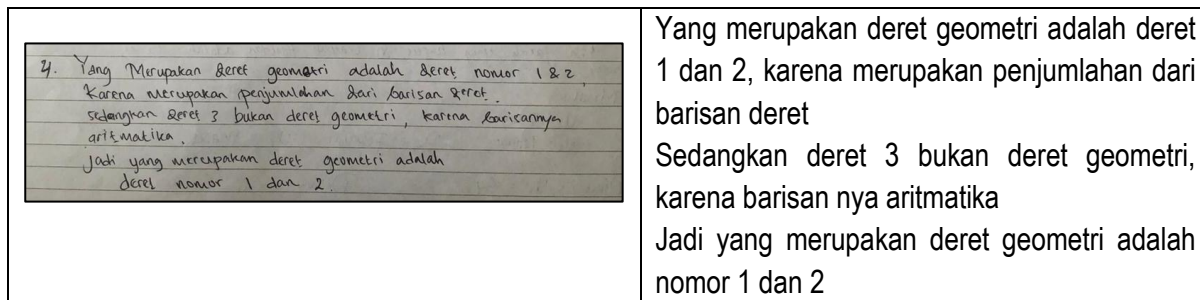 4. Yang Merupakan deret geometri adalah deret nomor 1 & 2,
Karena merupakan penjumlahan dari barisan deret.
sedangkan deret 3 bukan deret geometri, karena barisannya
aritmatika.
Jadi yang merupakan deret geometri adalah
deret nomor 1 dan 2.
Yang merupakan deret geometri adalah deret
1 dan 2, karena merupakan penjumlahan dari
barisan deret
Sedangkan deret 3 bukan deret geometri,
karena barisan nya aritmatika
Jadi yang merupakan deret geometri adalah
nomor 1 dan 2